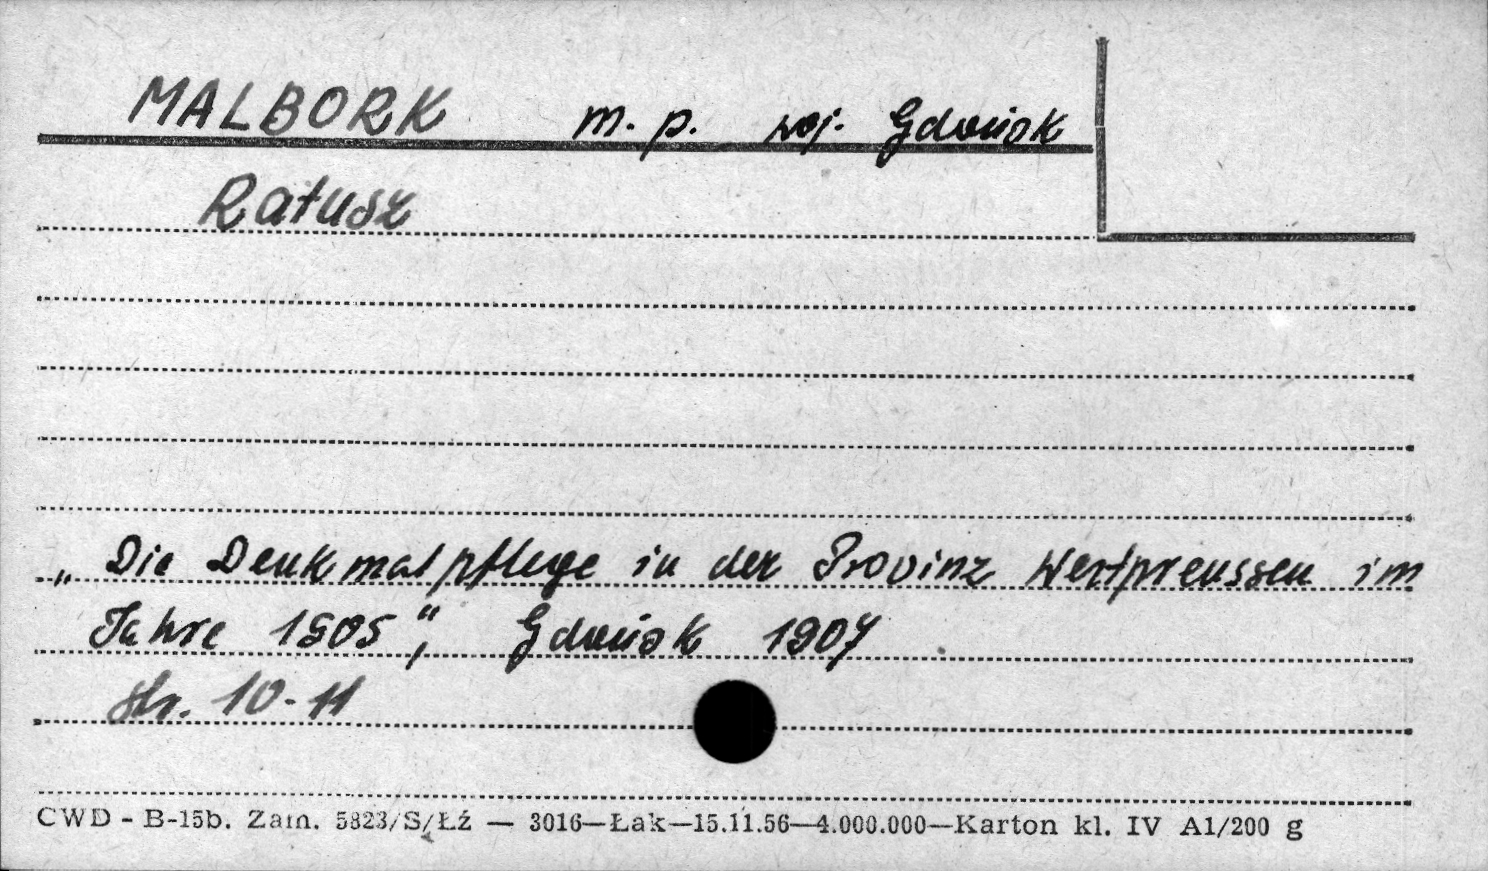 MALBORK m. p. woj. Gdańsk
Ratusz
„Die Denkmalpflege in der Provinz Westpreussen im
Jahre 1905“, Gdańsk 1907
str. 10-11
CWD - B-15b. Zam. 5823/S/Łź — 3016—Łak—15.11.56—4.000.000—Karton kl. IV A1/200 g